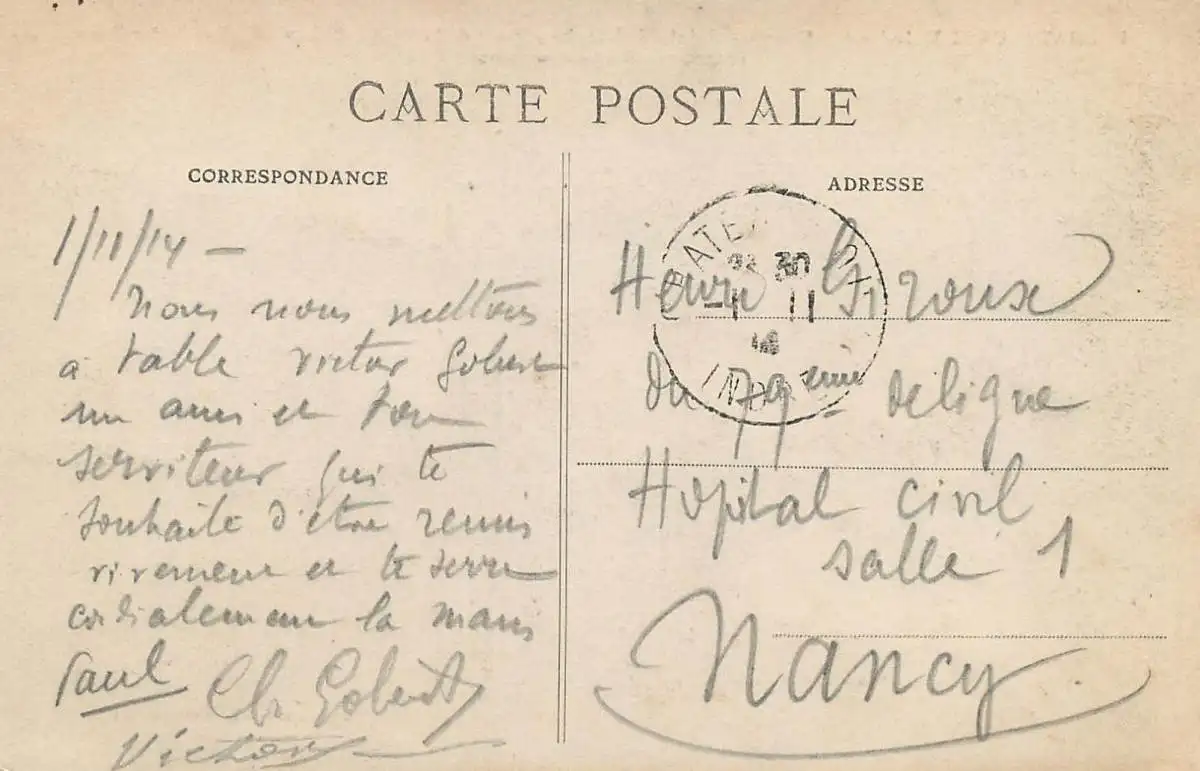 CARTE POSTALE
CORRESPONDANCE
1/11/14 –
Nous nous mettons
a table victor Gobert
un ami et ton
serviteur qui te
souhaite d'être remis
vivement et te serre
cordialement la main
Paul Ch. Gobert
Victor
ADRESSE
30
1 11
14
Henri Giroux
du 79eme de ligne
Hopital civil
salle 1
Nancy